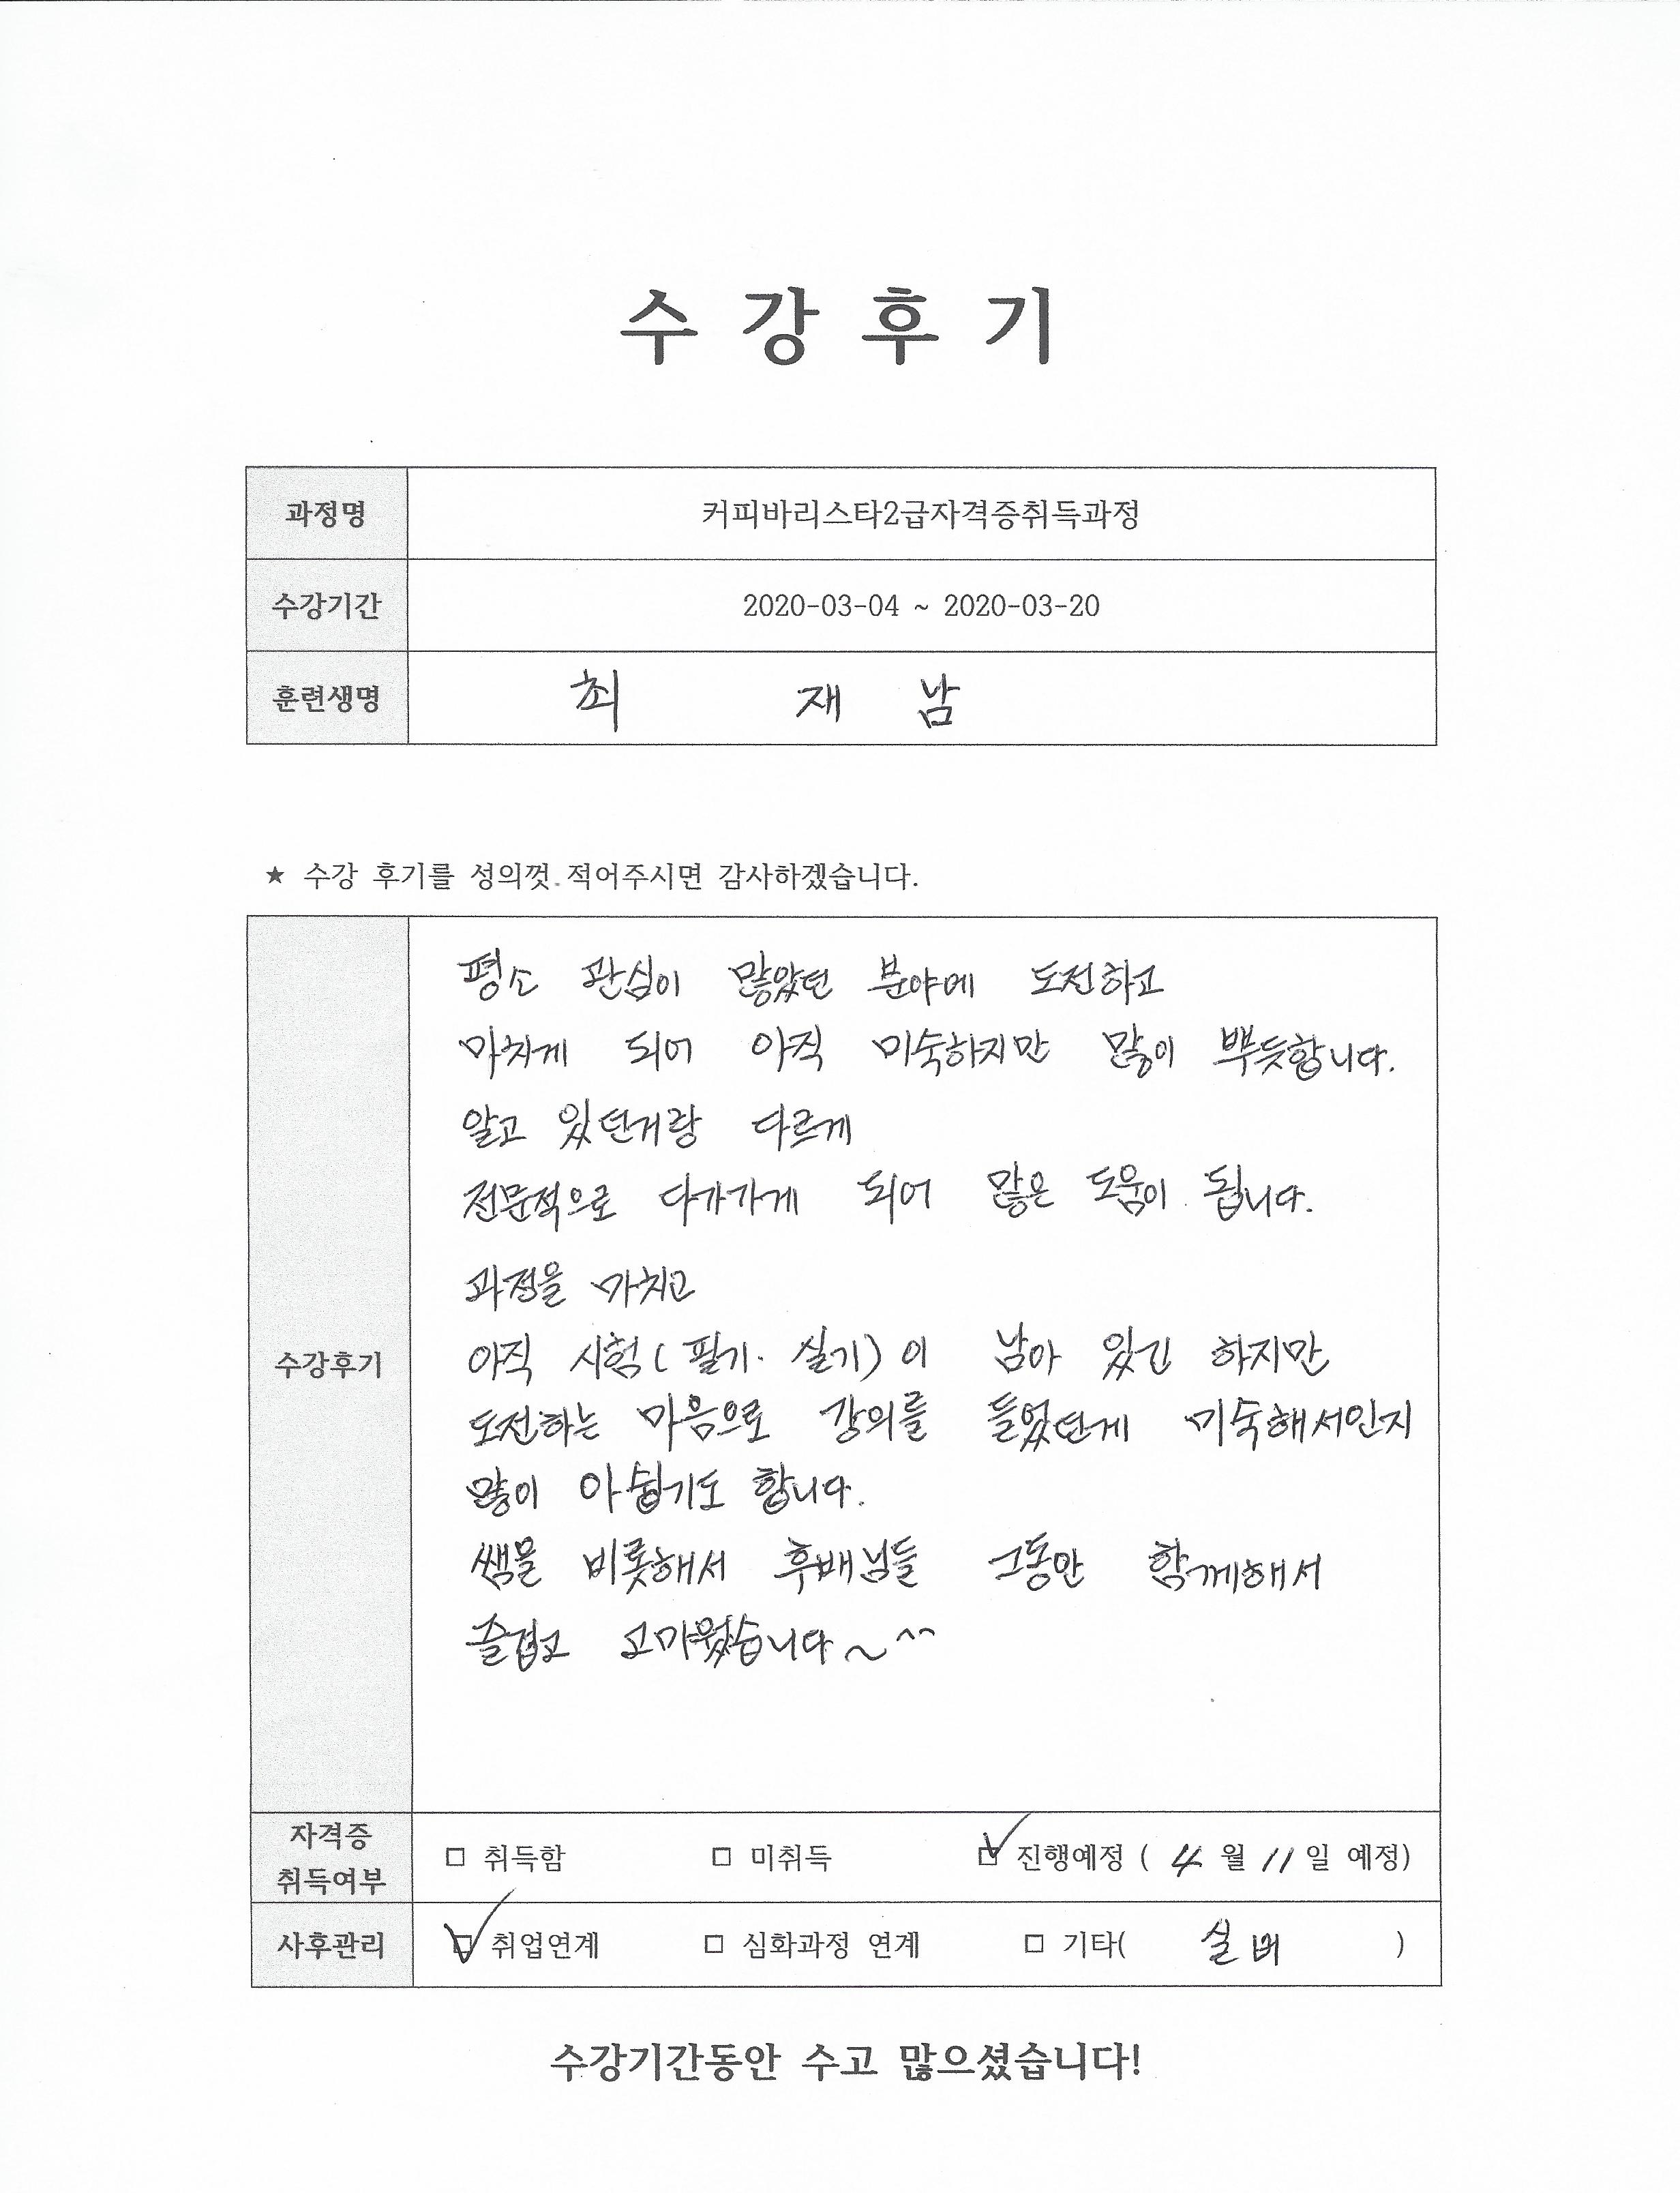 수 강 후 기
과정명 커피바리스타2급자격증취득과정
수강기간 2020-03-04 ~ 2020-03-20
훈련생명 최 재 남
★ 수강 후기를 성의껏 적어주시면 감사하겠습니다.
평소 관심이 많았던 분야에 도전하고
마치게 되어 아직 미숙하지만 많이 뿌듯합니다.
알고 있던거랑 다르게
전문적으로 다가가게 되어 많은 도움이 됩니다.
과정을 마치고
수강후기
아직 시험(필기. 실기)이 남아 있긴 하지만
도전하는 마음으로 강의를 들었던게 미숙해서인지
많이 아쉽기도 합니다.
쌤믈 비롯해서 후배님들 그동안 함께해서
즐겁고 고마웠습니다~^^
자격증
취득여부
□ 취득함 □ 미취득 ☑ 진행예정 ( 4 월 11 일 예정)
사후관리 ☑ 취업연계 □ 심화과정 연계 □ 기타( 실버 )
수강기간동안 수고 많으셨습니다!